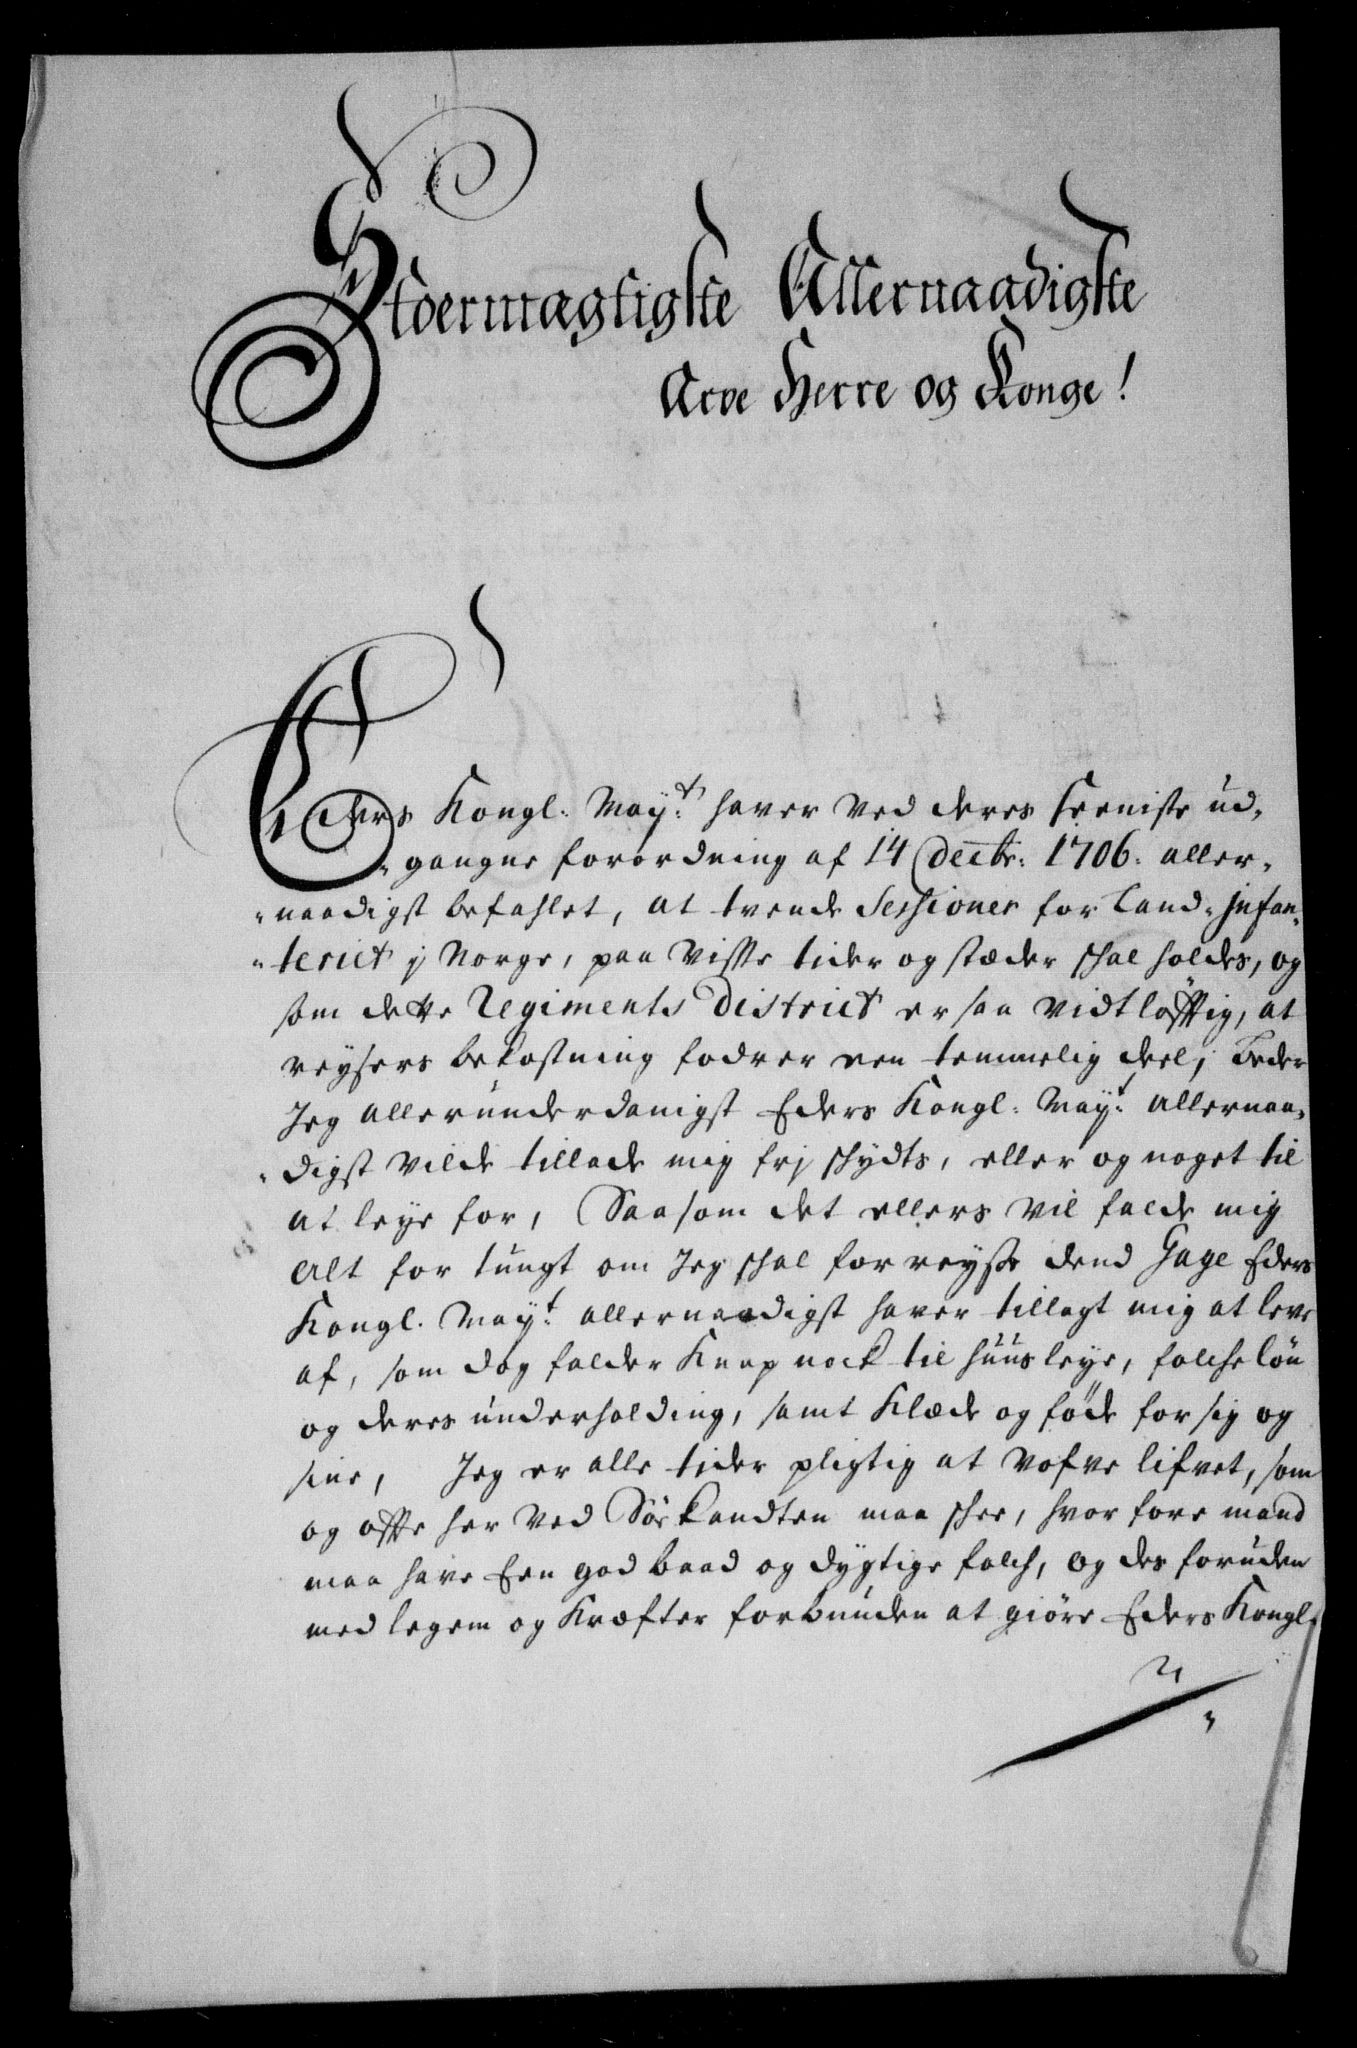 Stoermægtigste Allernaadigste
Arve Herre og Konge!
Eders Kongl: May:t haver ved deres seeniste ud-
-gangne forordning af 14 Decbr: 1706. aller-
-naadigst befahlet, at tvende Sessioner for Land-Infan-
-teriet j Norge, paa visse tider og stæder schal holdes, og
som dette Regiments District er saa vidtløfftig, at
reysers bekostning fodrer een temmelig deel, Beder
Jeg allerunderdanigst Eders Kongl: May:t allernaa-
-digst vilde tillade mig frj schydts, eller og noget til
at leye for, Saasom det ellers vil falde mig
alt for tungt om Jeg schal forreyse dend Gage Eders
Kongl. May:t allernaadigst haver tillagt mig at leve
af, som dog falder Knap nock til huusleye, folcheløn
og deres underholding, samt Klæde og føde for sig og
sine, Jeg er alle tider pligtig at vofve lifvet, som
og offte her ved Søekandten maa schee, hvorfore mand
maa have Een god baad og dygtige folch, og des foruden
med legem og Kræfter forbunden at giöre Eders Kongl: